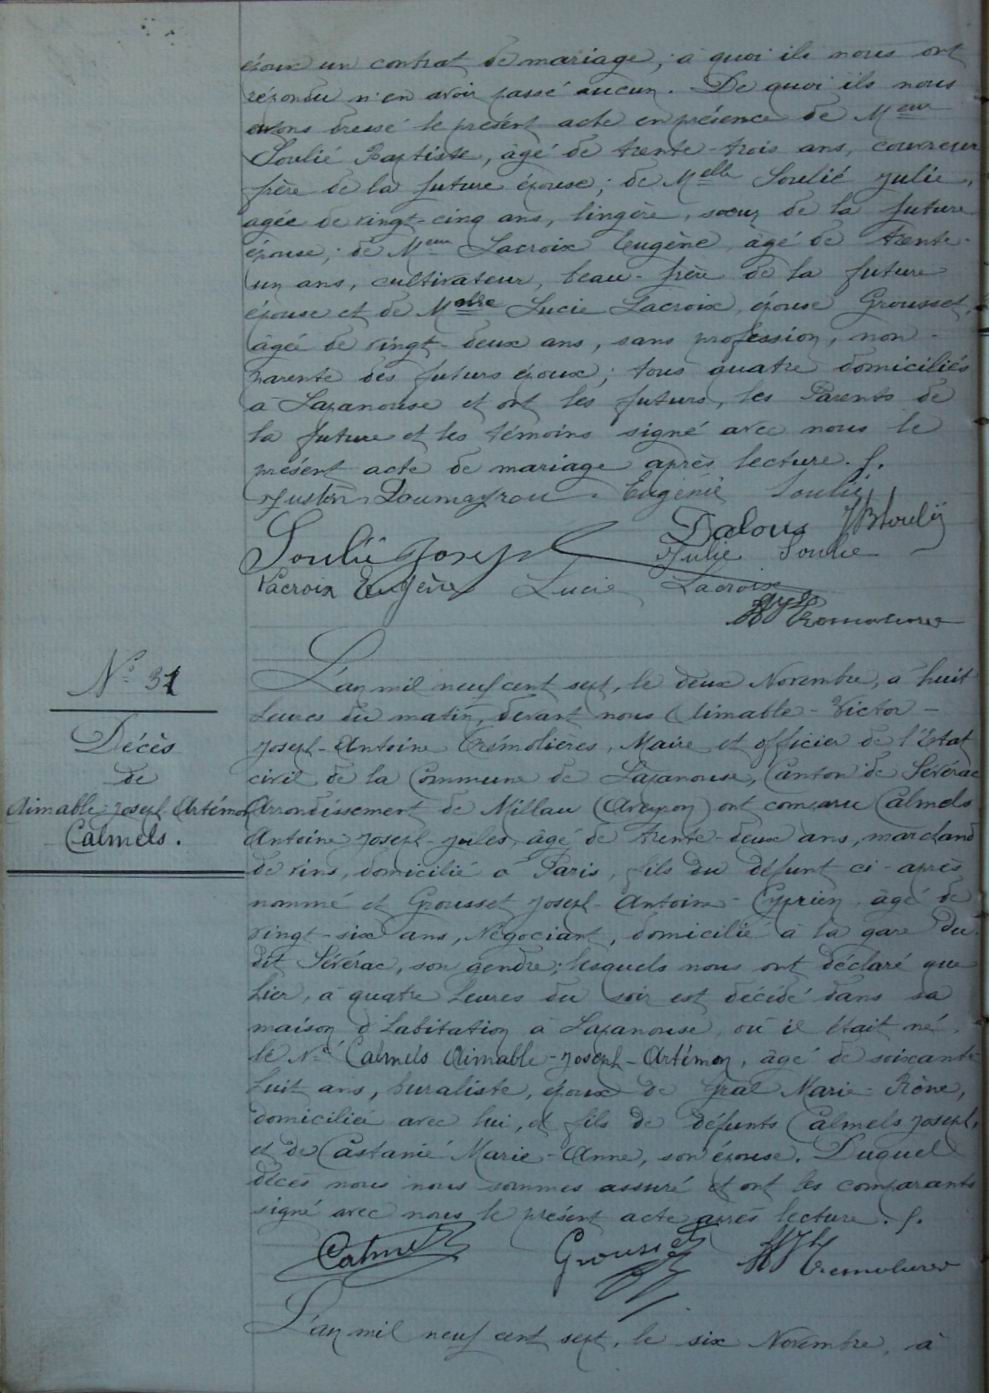 époux un contrat de mariage, à quoi ils nous ont
répondu n'en avoir passé aucun. De quoi ils nous
avons dressé le présent acte en présence de Meur
Soulié Baptiste, âgé de trente-trois ans, couvreur
frère de la future épouse; de Melle Soulié Julie,
agée de vingt-cinq ans, lingère, sœur de la future
épouse; de Meur Lacroix Eugène, âgé de trente-
un ans, cultivateur, beau-frère de la future
épouse et de Lucie Lacroix, épouse Grousset,
âgée de vingt-deux ans, sans profession, non-
parente des futurs époux; tous quatre domiciliés
à Lapanouse et ont les futurs, les Parents de
la future et les témoins signé avec nous le
présent acte de mariage après lecture. f.
Justin Doumayrou. Eugénie Soulié
Dalous JBSoulié
Soulié Josep Julie Soulié
Lacroix Eugène Lucie Lacroix
Tremolieres
N° 31
Décès
de
Aimable Joseph Artémon
Calmels.
L'an mil neuf cent sept, le deux Novembre, à huit
heures du matin, devant nous Aimable-Victor-
Joseph-Antoine Trémolières, Maire et officier de l'Etat
civil de la Commune de Lapanouse, Canton de Sévérac
Arrondissement de Millau (Aveyron) ont comparu Calmels
Antoine Joseph-Jules, âgé de trente-deux ans, marchand
de vins, domicilié à Paris, fils du défunt ci-après
nommé et Grousset Joseph-Antoine-Cyprien, âgé de
vingt-six ans, Négociant, domicilié à la gare du-
dit Sévérac, son gendre; lesquels nous ont déclaré que
hier, à quatre heures du soir est décédé dans sa
maison d'habitation à Lapanouse, où il était né,
le Né Calmels Aimable-Joseph-Artémon, âgé de soixante
huit ans, buraliste, époux de Gral Marie-Rène,
domiciliée avec lui, et fils de défunts Calmels Joseph,
et de Castanié Marie-Anne, son épouse. Duquel
décès nous nous sommes assuré et ont les comparants
signé avec nous le présent acte après lecture. f.
Calmels Grousset Tremolieres
L'an mil neuf cent sept, le six Novembre, à